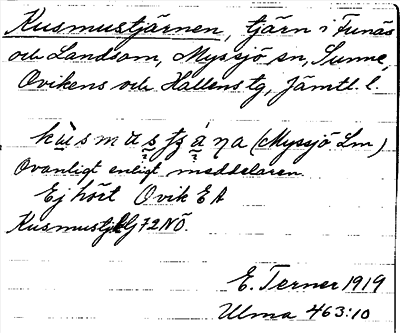 Kusmustjärnen, tjärn i Funäs
och Landsom, Myssjö sn, Sunne,
Ovikens och Hallens tg, Jämtl. l.
(Myssjö Lm)
Ovanligt enligt meddelaren.
Ej hört Ovik EA
G72NÖ.
E. Terner 1919
Ulma 463:10